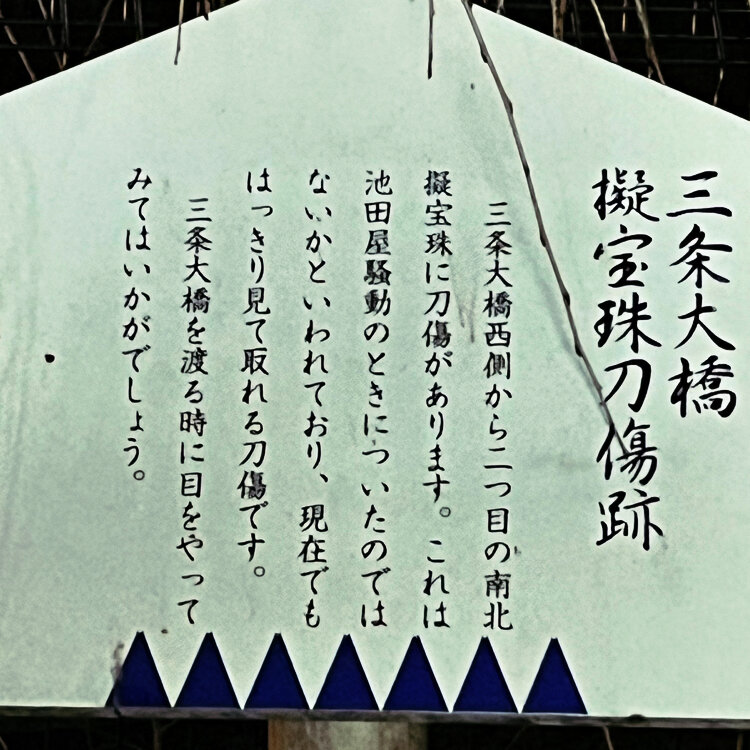 三条大橋
擬宝珠刀傷跡
三条大橋西側から二つ目の南北
擬宝珠に刀傷があります。これは
池田屋騒動のときについたのでは
ないかといわれており、現在でも
はっきり見て取れる刀傷です。
三条大橋を渡る時に目をやって
みてはいかがでしょう。